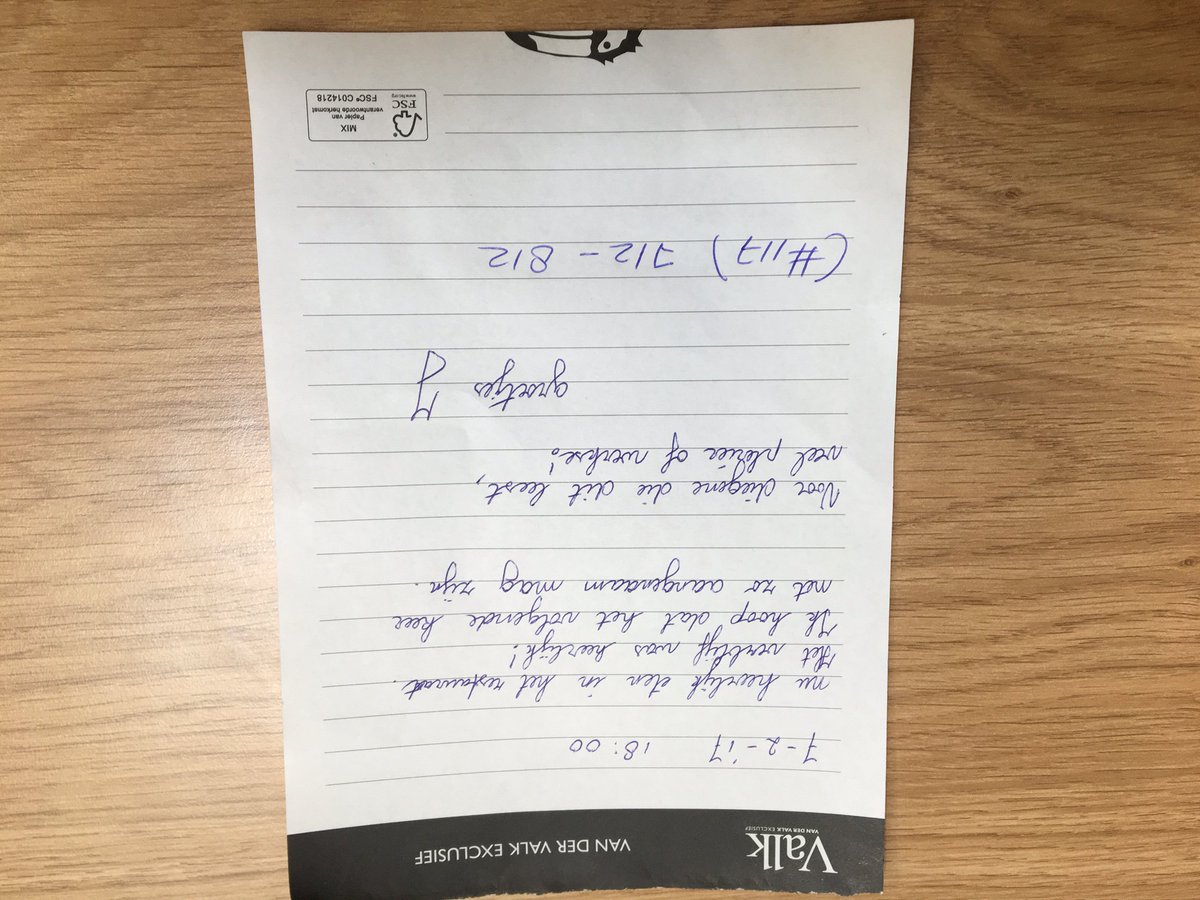 Valk
VAN DER VALK EXCLUSIEF
VAN DER VALK EXCLUSIEF
7-2-17 18:00
nu heerlijk eten in het restaurant.
Het verblijf was heerlijk!
Ik hoop dat het volgende keer
net zo aangenaam mag zijn.
Voor diegene die dit leest,
veel plezier of werkse!
groetjes J
(#117) 7/2 - 8/2
MIX
Papier van
verantwoorde herkomst
FSC® C014218
FSC
www.fsc.org